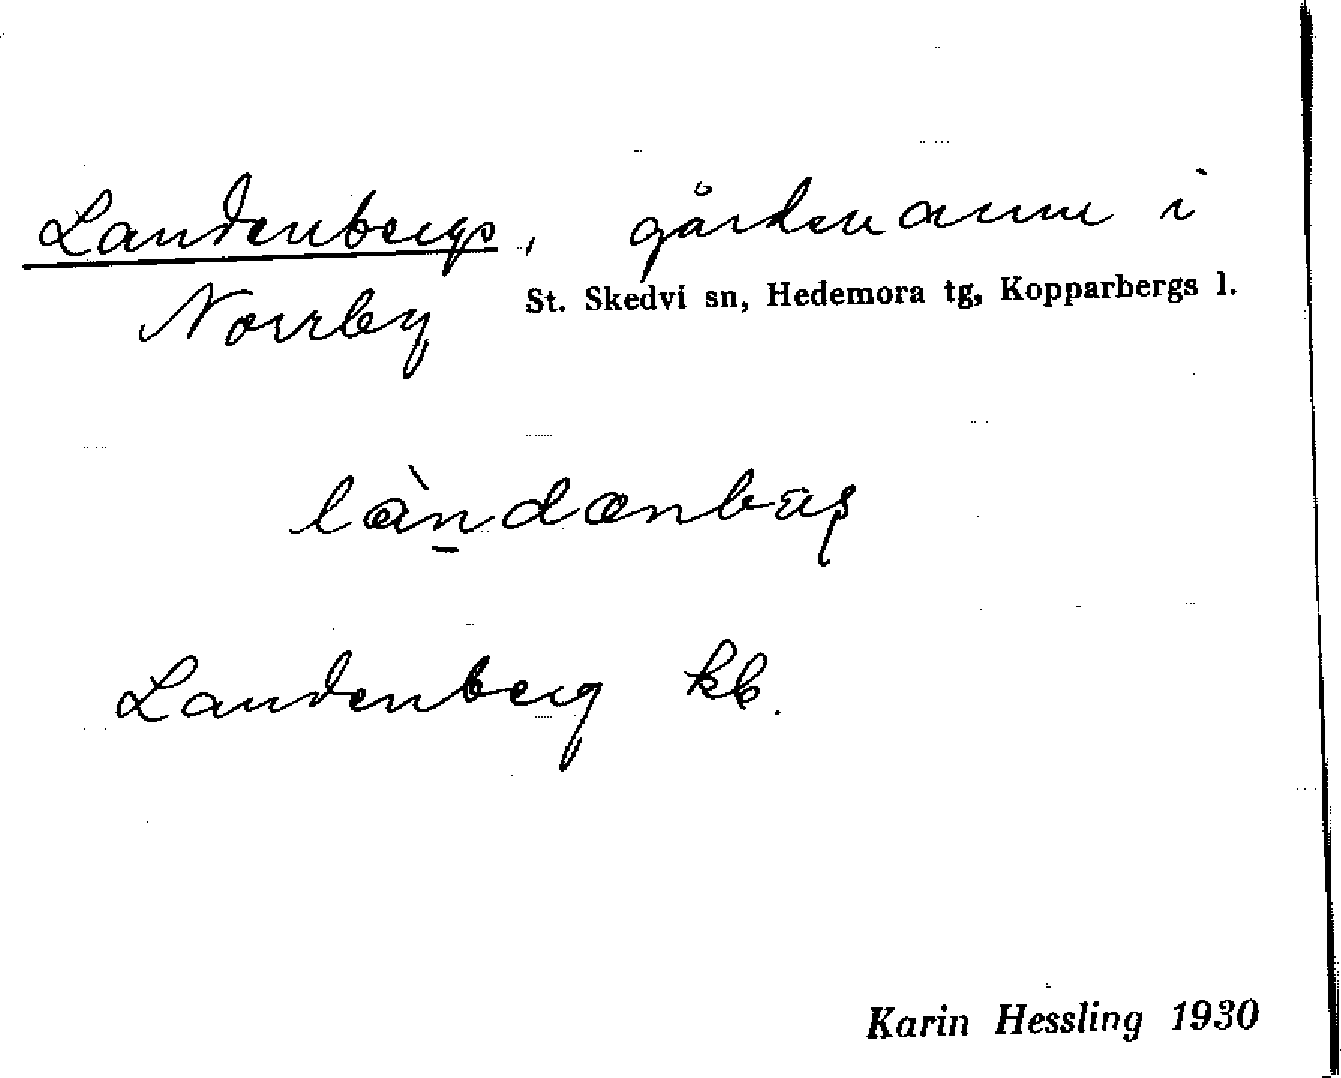 Landenbergs, gårdsnamn i
Norrby St. Skedvi sn, Hedemora tg, Kopparbergs l.
Landenberg kb.
Karin Hessling 1930